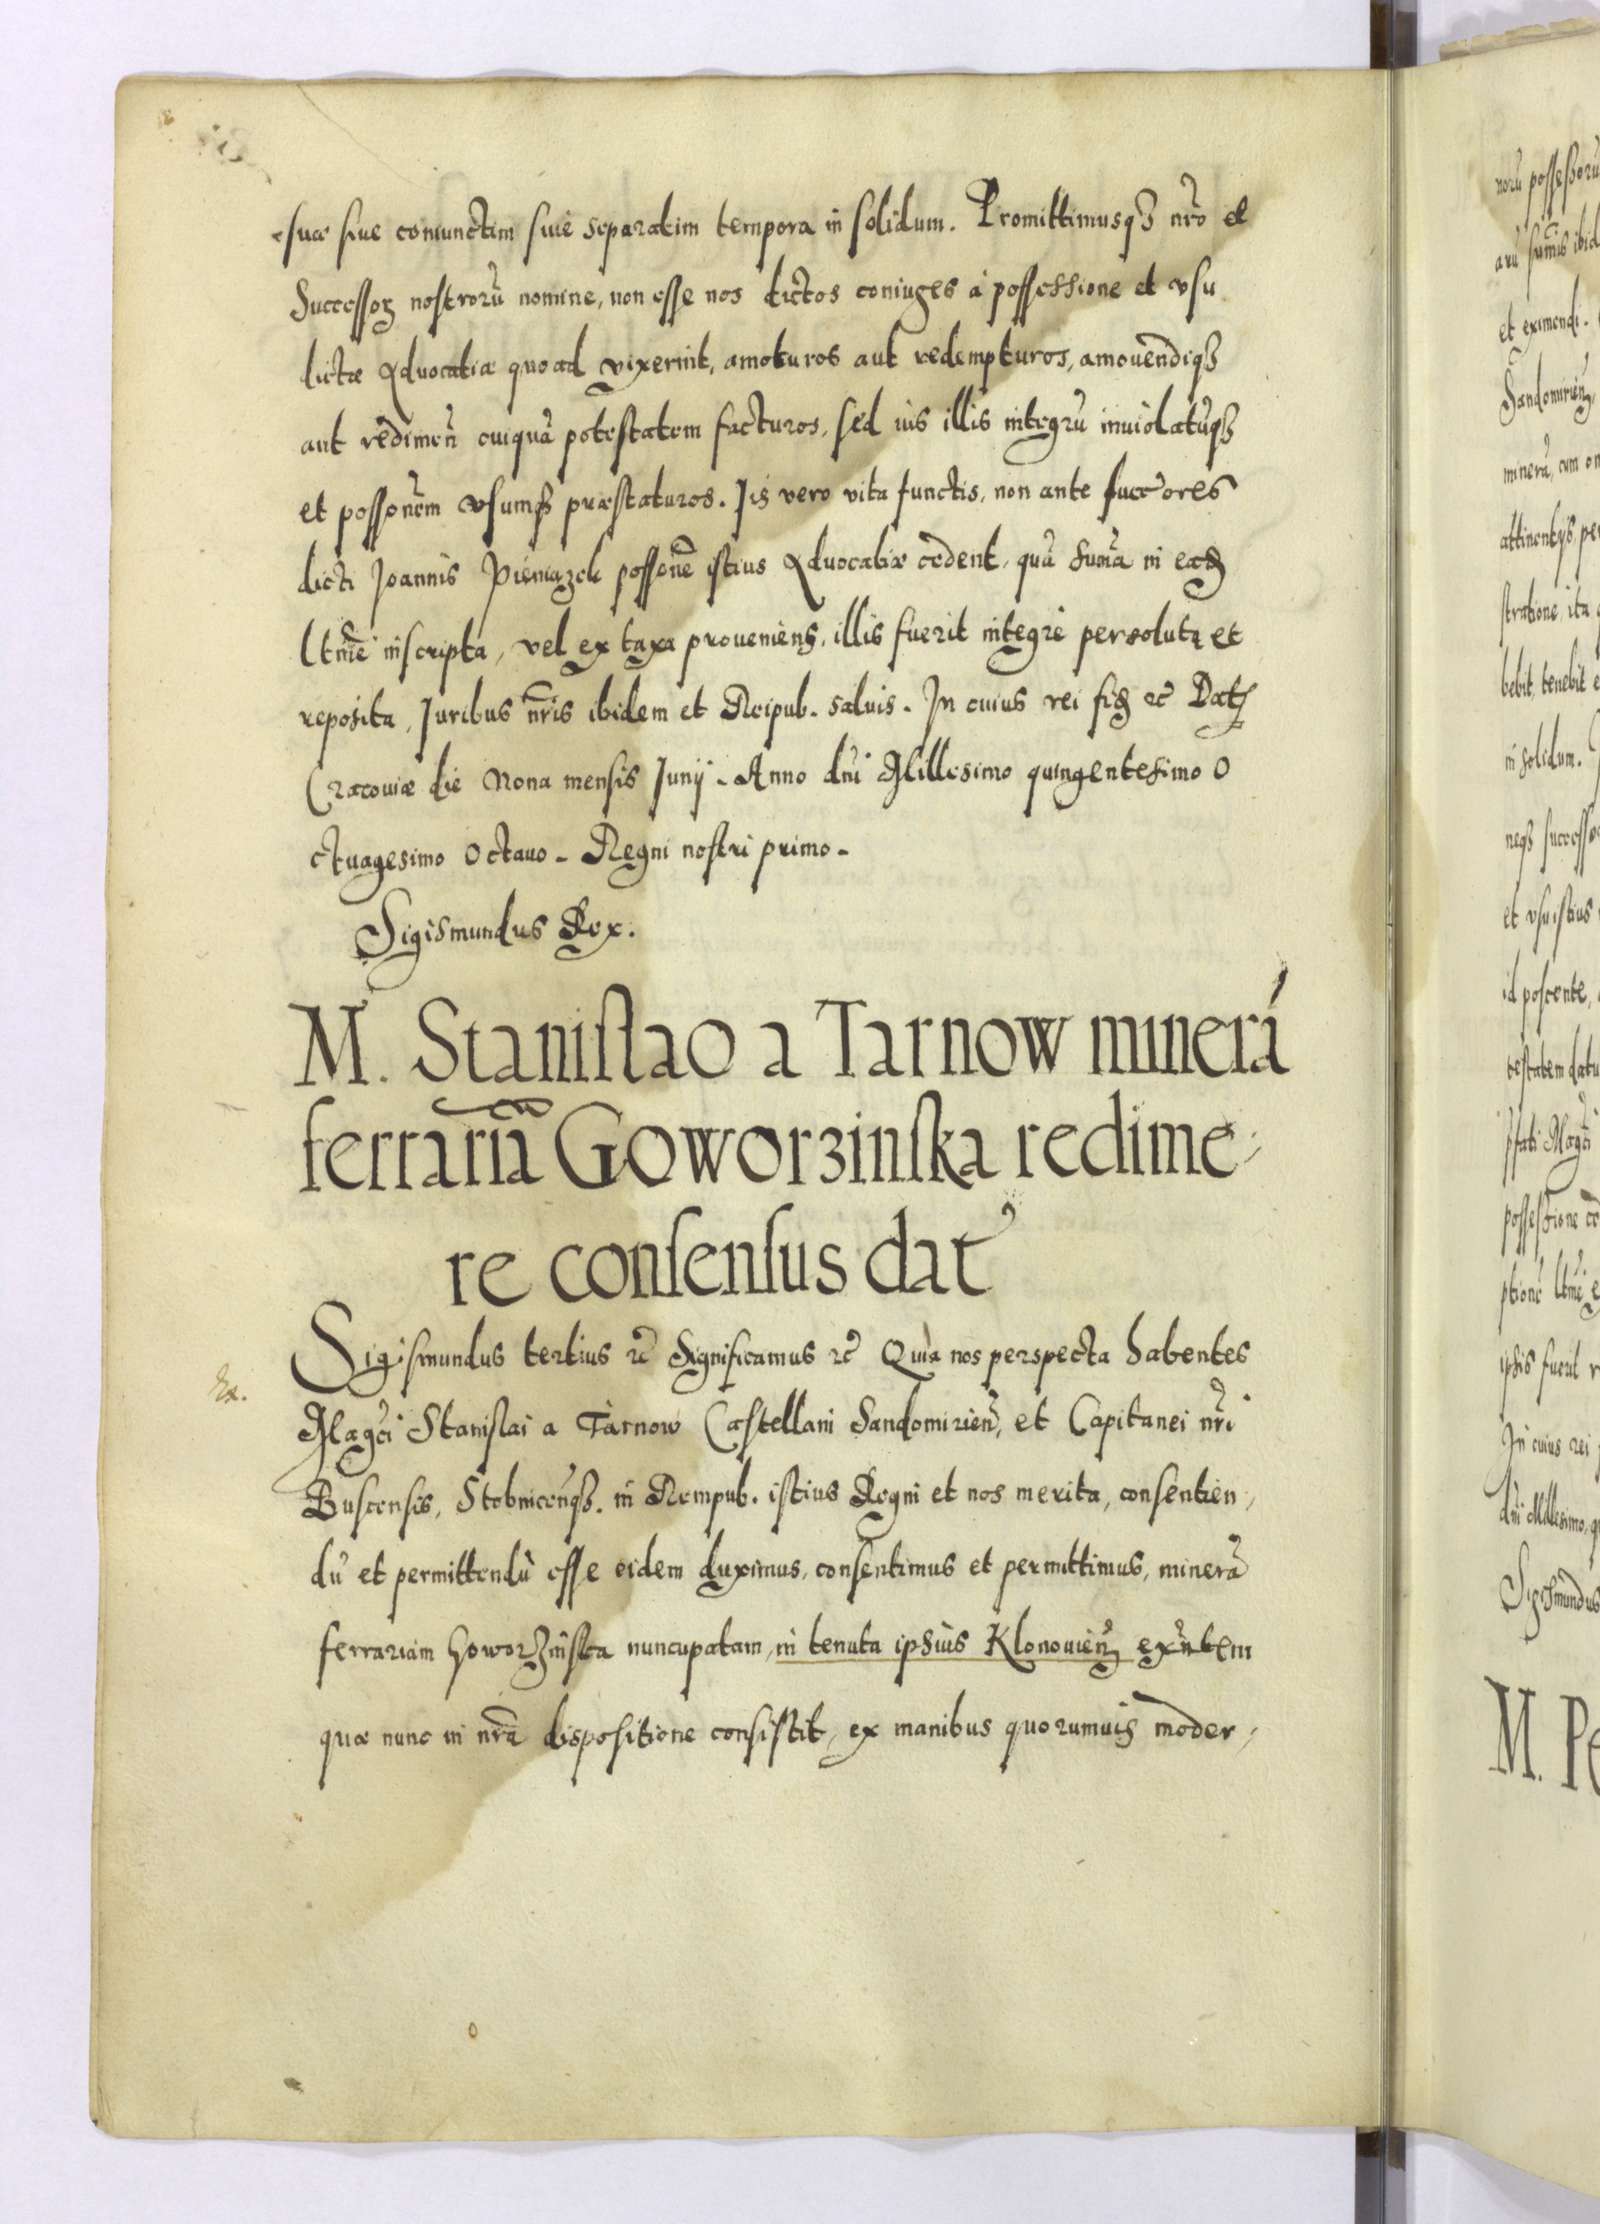 suæ siue coniunctim siue separatim tempora in solidum. Promittimusqȝ nr̃o et
Successoꝝ nostrorũ nomine, non esse nos dictos coniuges à possessione et vsu
dictæ Aduocatiæ quoad vixerint, amoturos aut redempturos, amouendiqȝ
aut redimen̄ cuiquã potestatem facturos, sed ius illis integrũ inuiolatũqȝ
et posson̄em vsumqȝ præstaturos. Iis vero vita functis, non ante succ̄ores
dicti Joannis Pieniazek posson̄e istius Aduocatiæ cedent, quã sum̄a in eadȝ
ltīme inscripta, vel ex taxa proueniens, illis fuerit integrè persoluta et
reposita, Iuribus nr̄is ibidem et Reipub. saluis. In cuius rei fidȝ ꝛc Datȝ
Cracouiæ die Nona mensis Iunij. Anno dñi Millesimo quingentesimo O
ctuagesimo Octauo. Regni nostri primo.
Sigismundus Rex.
M. Stanislao a Tarnow minerã
ferrariã Goworzinska redime
re consensus dat᷒
Sigismundus tertius ꝛc Significamus ꝛc Quia nos perspecta habentes
Ex.
Magci Stanislai a Tarnow Castellani Sandomirien̄, et Capitanei nr̄i
Buscensis, Stobnicen̄qȝ. in Rempub. istius Regni et nos merita, consentien
dũ et permittendũ esse eidem duximus, consentimus et permittimus, minerã
ferrariam Howorzinska nuncupatam, in tenuta ipsius Klonouien̄ exn̄tem
quæ nunc in nr̄a dispositione consistit, ex manibus quorumuis moder
norũ possessorũ
arũ sum̄is ibid
et eximendi.
Sandomirien̄,
minerã, cum om
attinentijs, per
stratione, ita
bebit, tenebit e
in solidum.
neqȝ successo
et vsu istius
id poscente,
testatem datu
Magci
possessione ce
ptione ltīme
ipsis fuerit r
In cuius rei
dñi Millesimo, q
Sigismundus
M. Pe